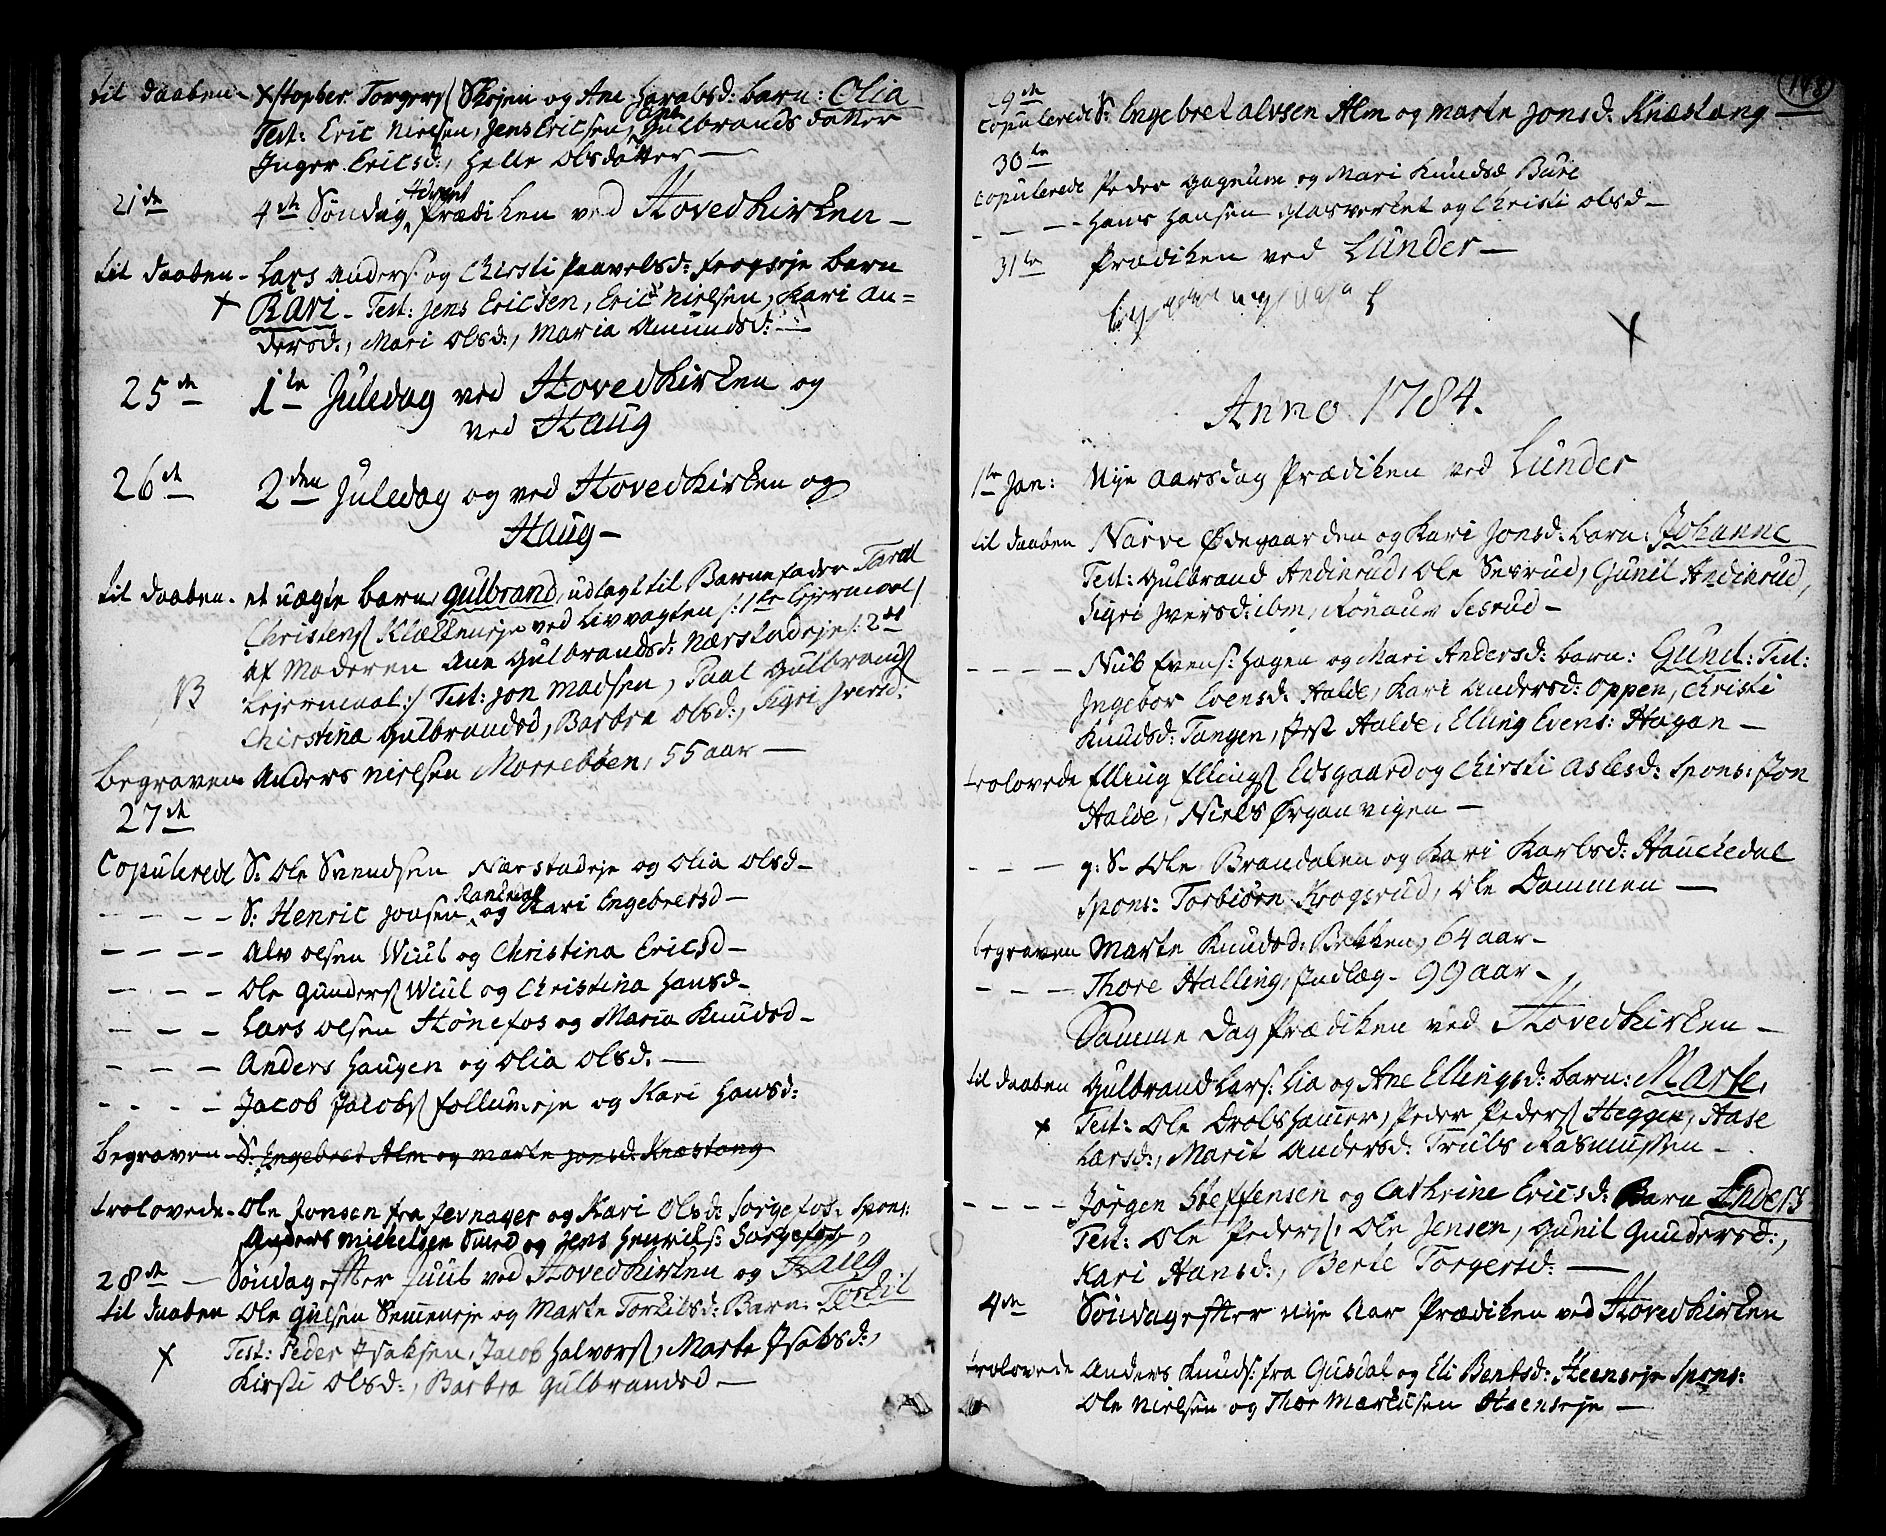 til Daaben - Xstopher Torgers Skojen og Ane Jacobsd: barn: Olia
Test: Eric Nielsen, Jens Ericsen, Gulbrands datter
Inger Ericsd:, Helle Olsdatter —
21de 4de Søndag Advent Prædiken ved Hovedkirken —
til daaben - Lars Anders: og Chirsti Paavelsd: Frogseje barn
x Kari - Test: Jens Ericsen, Eric Nielsen, Kari An=
dersd:, Mari Olsd:, Maria Amundsd: —
25de 1te Juledag ved Hovedkirken og
ved Haug
26de 2den Juledag og ved Hovedkirken og
Haug —
til daaben - et uægte barn, Gulbrand, udlagt til Barnefader Tarald
Christens Klækkeneje ved Livvagten /:1te Lejermaal/
af Moderen Ane Gulbrandsd: Nærstadeje /: 2det
NB Lejermaal:/ Test: Jon Madsen, Paal Gulbrands
Chirstina Gulbrandsd, Barbra Olsd:, Sigri Iversd:
begraven Anders Nielsen Morrebøen, 55 aar —
27de
Copulerede S: Ole Svendsen Nærstadeje og Olia Olsd —
- - - - S: Henric Jonsen og Kari Engebretsd —
- - - - Alv Olsen Wiul og Christina Ericsd —
- - - - Ole Gunders Wiul og Christina Hansd —
- - - Lars Olsen Hønefos og Maria Knudsd —
- - - Anders Haugen og Olia Olsd. —
- - - - Jacob Jacobs Follumeje og Kari Hansd:
begraven - S: Engebret Alm og Marte Jonsd: Knæstang
trolovede - Ole Jonsen fra Jevnager og Kari Olsd: Sørgefos: Spons:
Anders Mickelsen Smed og Jens Henriks: Sørgefos,
28de — Søndag efter Juul ved Hovedkirken og Haug
til daaben Ole Gulsen Semmeneje og Marte Torkilsd: Barn: Torkil
x Test: Peder Isaksen, Jacob Halvors, Marte Isaksd:,
Kirsti Olsd:, Barbra Gulbrandsd —
148
29de
Copulerede S: Engebret Alvsen Alm og Marte Jonsd: Knæstang —
30te
Copulerede Peder Gagnum og Mari Knudsd Bure
- - - - Hans Hansen Glasverket og Christi Olsd —
31te Prædiken ved Lunder —
x
Anno 1784.
1te Jan: Nye Aarsdag Prædiken ved Lunder
til daaben Narve Ødegaarden og Kari Jonsd: barn: Johanne
Test: Gulbrand Andinrud, Ole Sevrud, Gunil Andinrud,
Sigri Iversd: ibm, Rønaus Sesrud —
- - - - Niels Evens: Hagen og Mari Andersd: barn: Gunil: Test:
Ingebor Evensd: Aalde, Kari Andersd: Oppen, Christi
Knudsd: Tangen, Jost Aalde, Elling Evens: Hagan —
trolovede Elling Ellings Edsgaard og Chirsti Aslesd: Spons: Jon
Aalde, Niels Ørganvigen —
- - - g: S - Ole Brandalen og Kari Karlsd: Hauckedal
Spons: Torbiørn Krogsrud, Ole Dammen —
begraven Marte Knudsd: Bekken, 64 aar —
- - - Thore Halling, Indlæg - 99 aar —
Samme Dag Prædiken ved Hovedkirken —
til daaben Gulbrand Lars: Lia og Ane Ellingsd: barn: Marte,
x Test: Ole Drolshamer, Peder Peders Heggen, Aase
Larsd:, Marit Andersd: Truls Rasmussen —
- - - - Jørgen Steffensen og Cathrine Ericsd: Barn Anders
Test: Ole Peders, Ole Jensen, Gunil Gundersd:,
Kari Hansd:, Berte Torgersd: —
4de Søndag efter Nye Aar Prædiken ved Hovedkirken
trolovede Anders Knuds: fra Gusdal og Eli Bentsd: Heenseje Spons:
Ole Nielsen og Thor Markusen Heenseje —